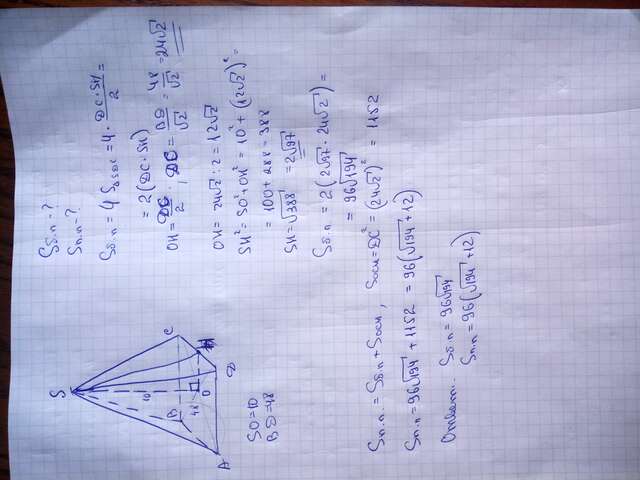 S
10
B
C
H
48
O
A
D
SO=10
BD=48
Sб.п-?
Sп.п-?
Sб.п = 4 S△SDC = 4 · DC·SH/2 =
= 2(DC·SH)
OH = DC/2 ; DC = BD/√2 = 48/√2 = 24√2
OH = 24√2 : 2 = 12√2
SH² = SO² + OH² = 10² + (12√2)² =
= 100 + 288 = 388
SH = √388 = 2√97
Sб.п = 2(2√97 · 24√2) =
= 96√194
Sп.п. = Sб.п + Sосн , Sосн = DC² = (24√2)² = 1152
Sп.п = 96√194 + 1152 = 96(√194 + 12)
Ответ: Sб.п = 96√194
Sп.п = 96(√194 + 12)